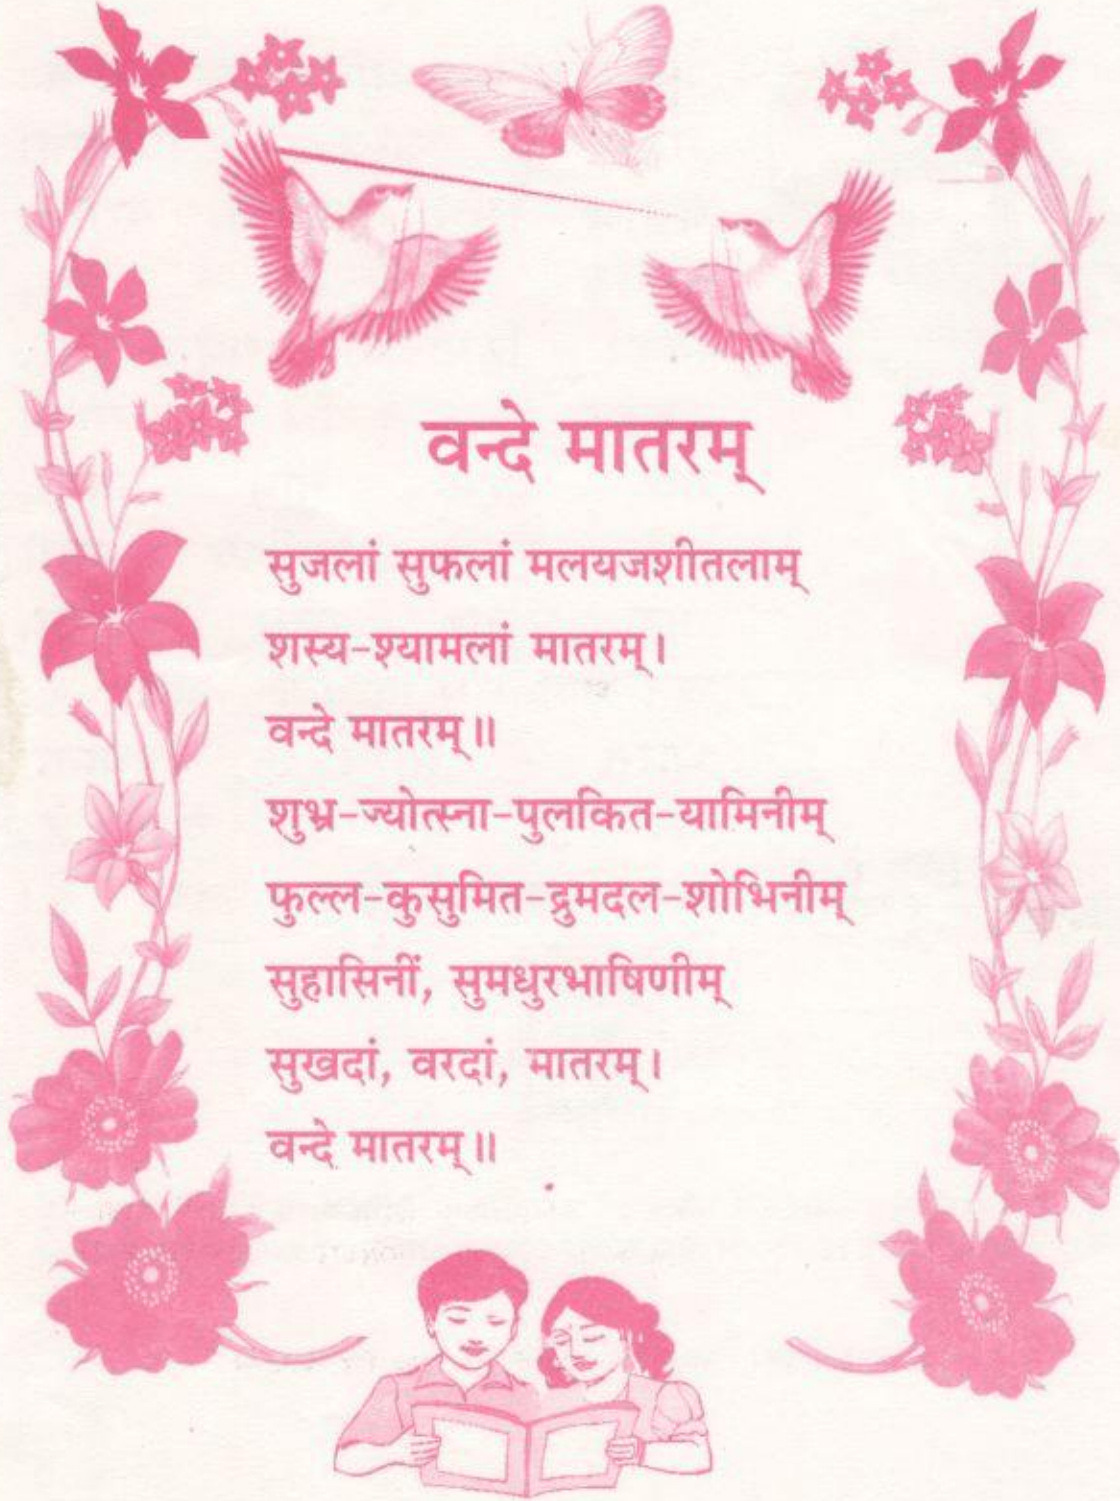 वन्दे मातरम्
सुजलां सुफलां मलयजशीतलाम्
शस्य-श्यामलां मातरम्।
वन्दे मातरम्॥
शुभ्र-ज्योत्स्ना-पुलकित-यामिनीम्
फुल्ल-कुसुमित-द्रुमदल-शोभिनीम्
सुहासिनीं, सुमधुरभाषिणीम्
सुखदां, वरदां, मातरम्।
वन्दे मातरम्॥